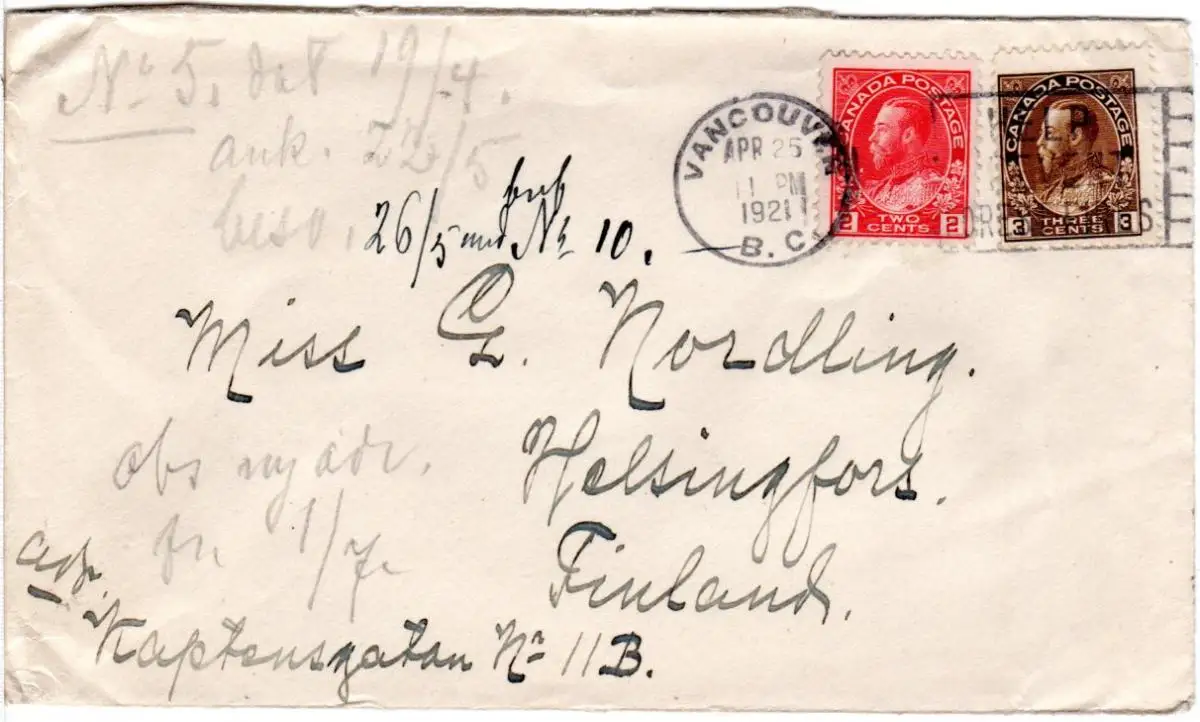 No 5, dat 19/4.
ank. 22/5
besv. 26/5 med bref No 10.
VANCOUVER
APR 25
11 PM
1921
B. C.
CANADA POSTAGE
2 TWO CENTS 2
CANADA POSTAGE
3 THREE CENTS 3
HELP
Miss G. Nordling.
Helsingfors.
Finland.
obs ny adr.
fr. 1/7
adr.
Kaptensgatan No 11B.